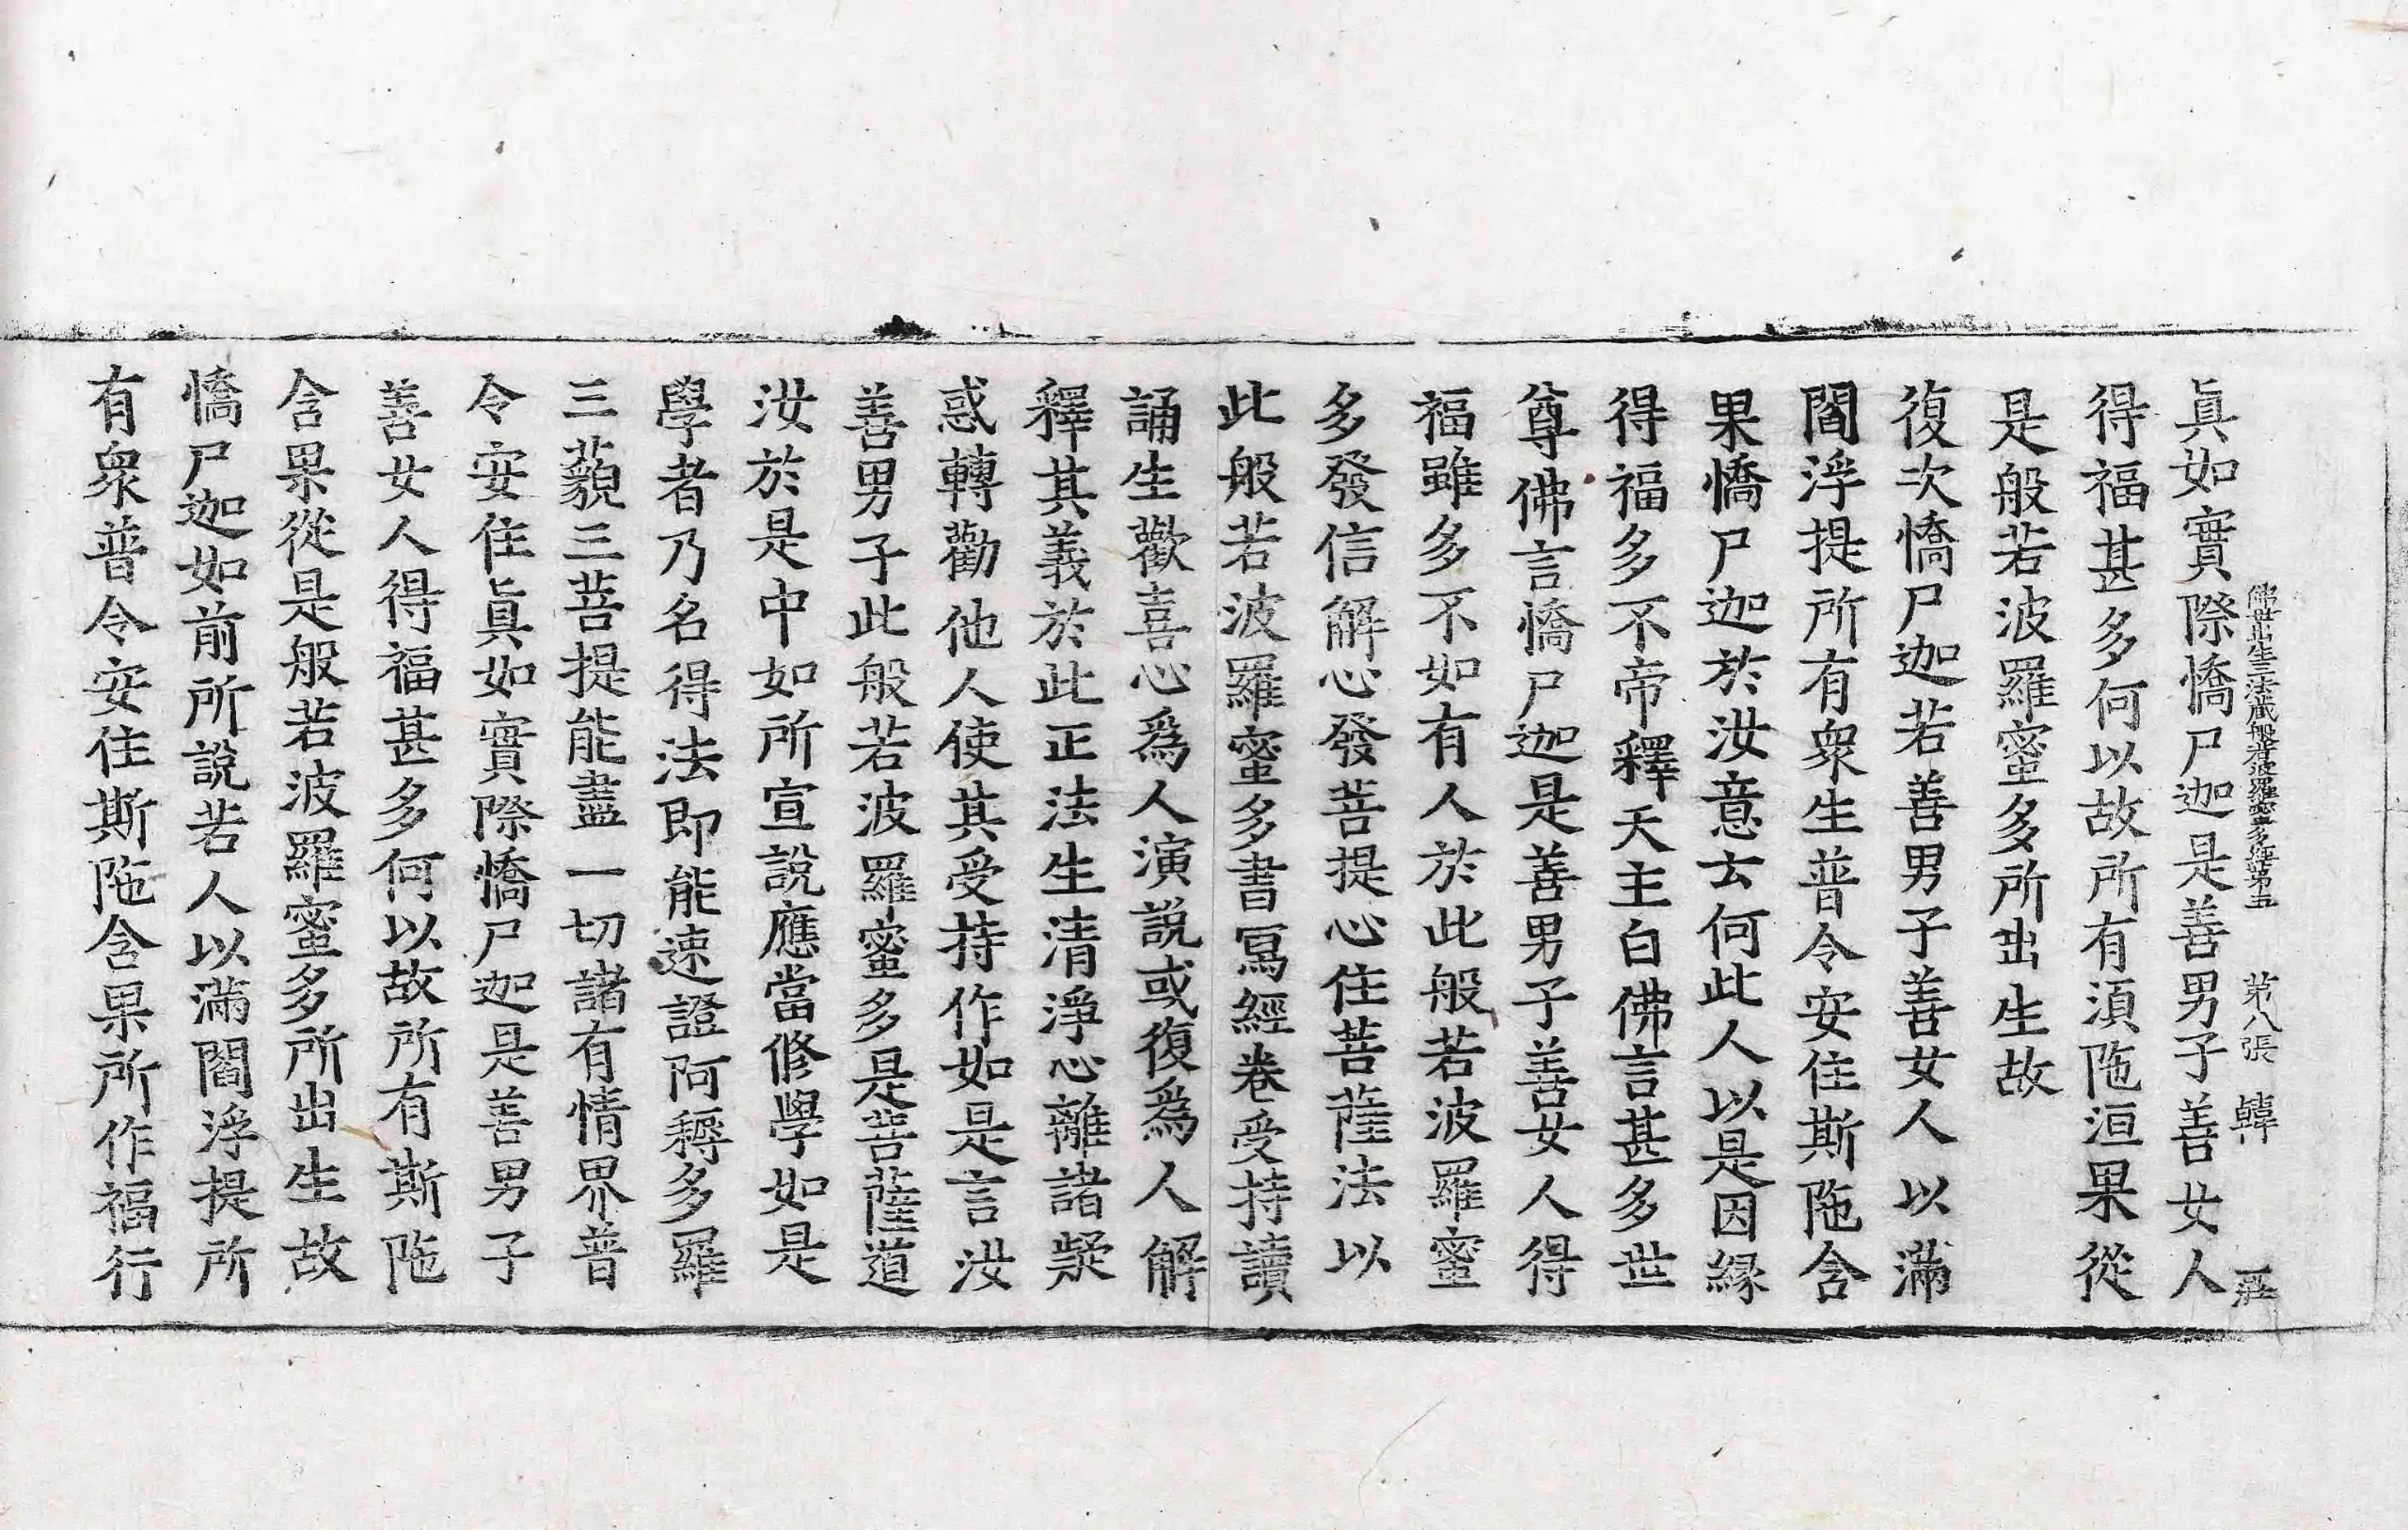 佛母出生三法藏般若波羅蜜多經第五 第八張 韓
眞如實際憍尸迦是善男子善女人
得福甚多何以故所有須陁洹果從
是般若波羅蜜多所出生故
復次憍尸迦若善男子善女人以滿
閻浮提所有衆生普令安住斯陁含
果憍尸迦於汝意云何此人以是因縁
得福多不帝釋天主白佛言甚多世
尊佛言憍尸迦是善男子善女人得
福雖多不如有人於此般若波羅蜜
多發信解心發菩提心住菩薩法以
此般若波羅蜜多書寫經卷受持讀
誦生歡喜心爲人演說或復爲人解
釋其義於此正法生清淨心離諸疑
惑轉勸他人使其受持作如是言汝
善男子此般若波羅蜜多是菩薩道
汝於是中如所宣說應當修學如是
學者乃名得法即能速證阿耨多羅
三藐三菩提能盡一切諸有情界普
令安住眞如實際憍尸迦是善男子
善女人得福甚多何以故所有斯陁
含果從是般若波羅蜜多所出生故
憍尸迦如前所說若人以滿閻浮提所
有衆普令安住斯陁含果所作福行